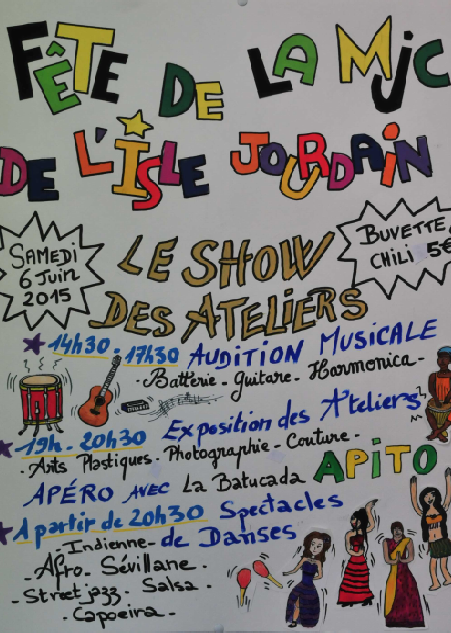 FÊTE DE LA MJC
DE L'ISLE JOURDAIN
SAMEDI
6 JUIN
2015
BUVETTE
CHILI 5€
LE SHOW
DES ATELIERS
14h30 - 17h30 AUDITION MUSICALE
- Batterie - Guitare - Harmonica -
19h - 20h30 Exposition des Ateliers
- Arts Plastiques - Photographie - Couture -
APÉRO AVEC La Batucada APITO
A partir de 20h30 Spectacles
de Danses
- Indienne -
- Afro - Sévillane -
- Street jazz - Salsa -
- Capoeira -